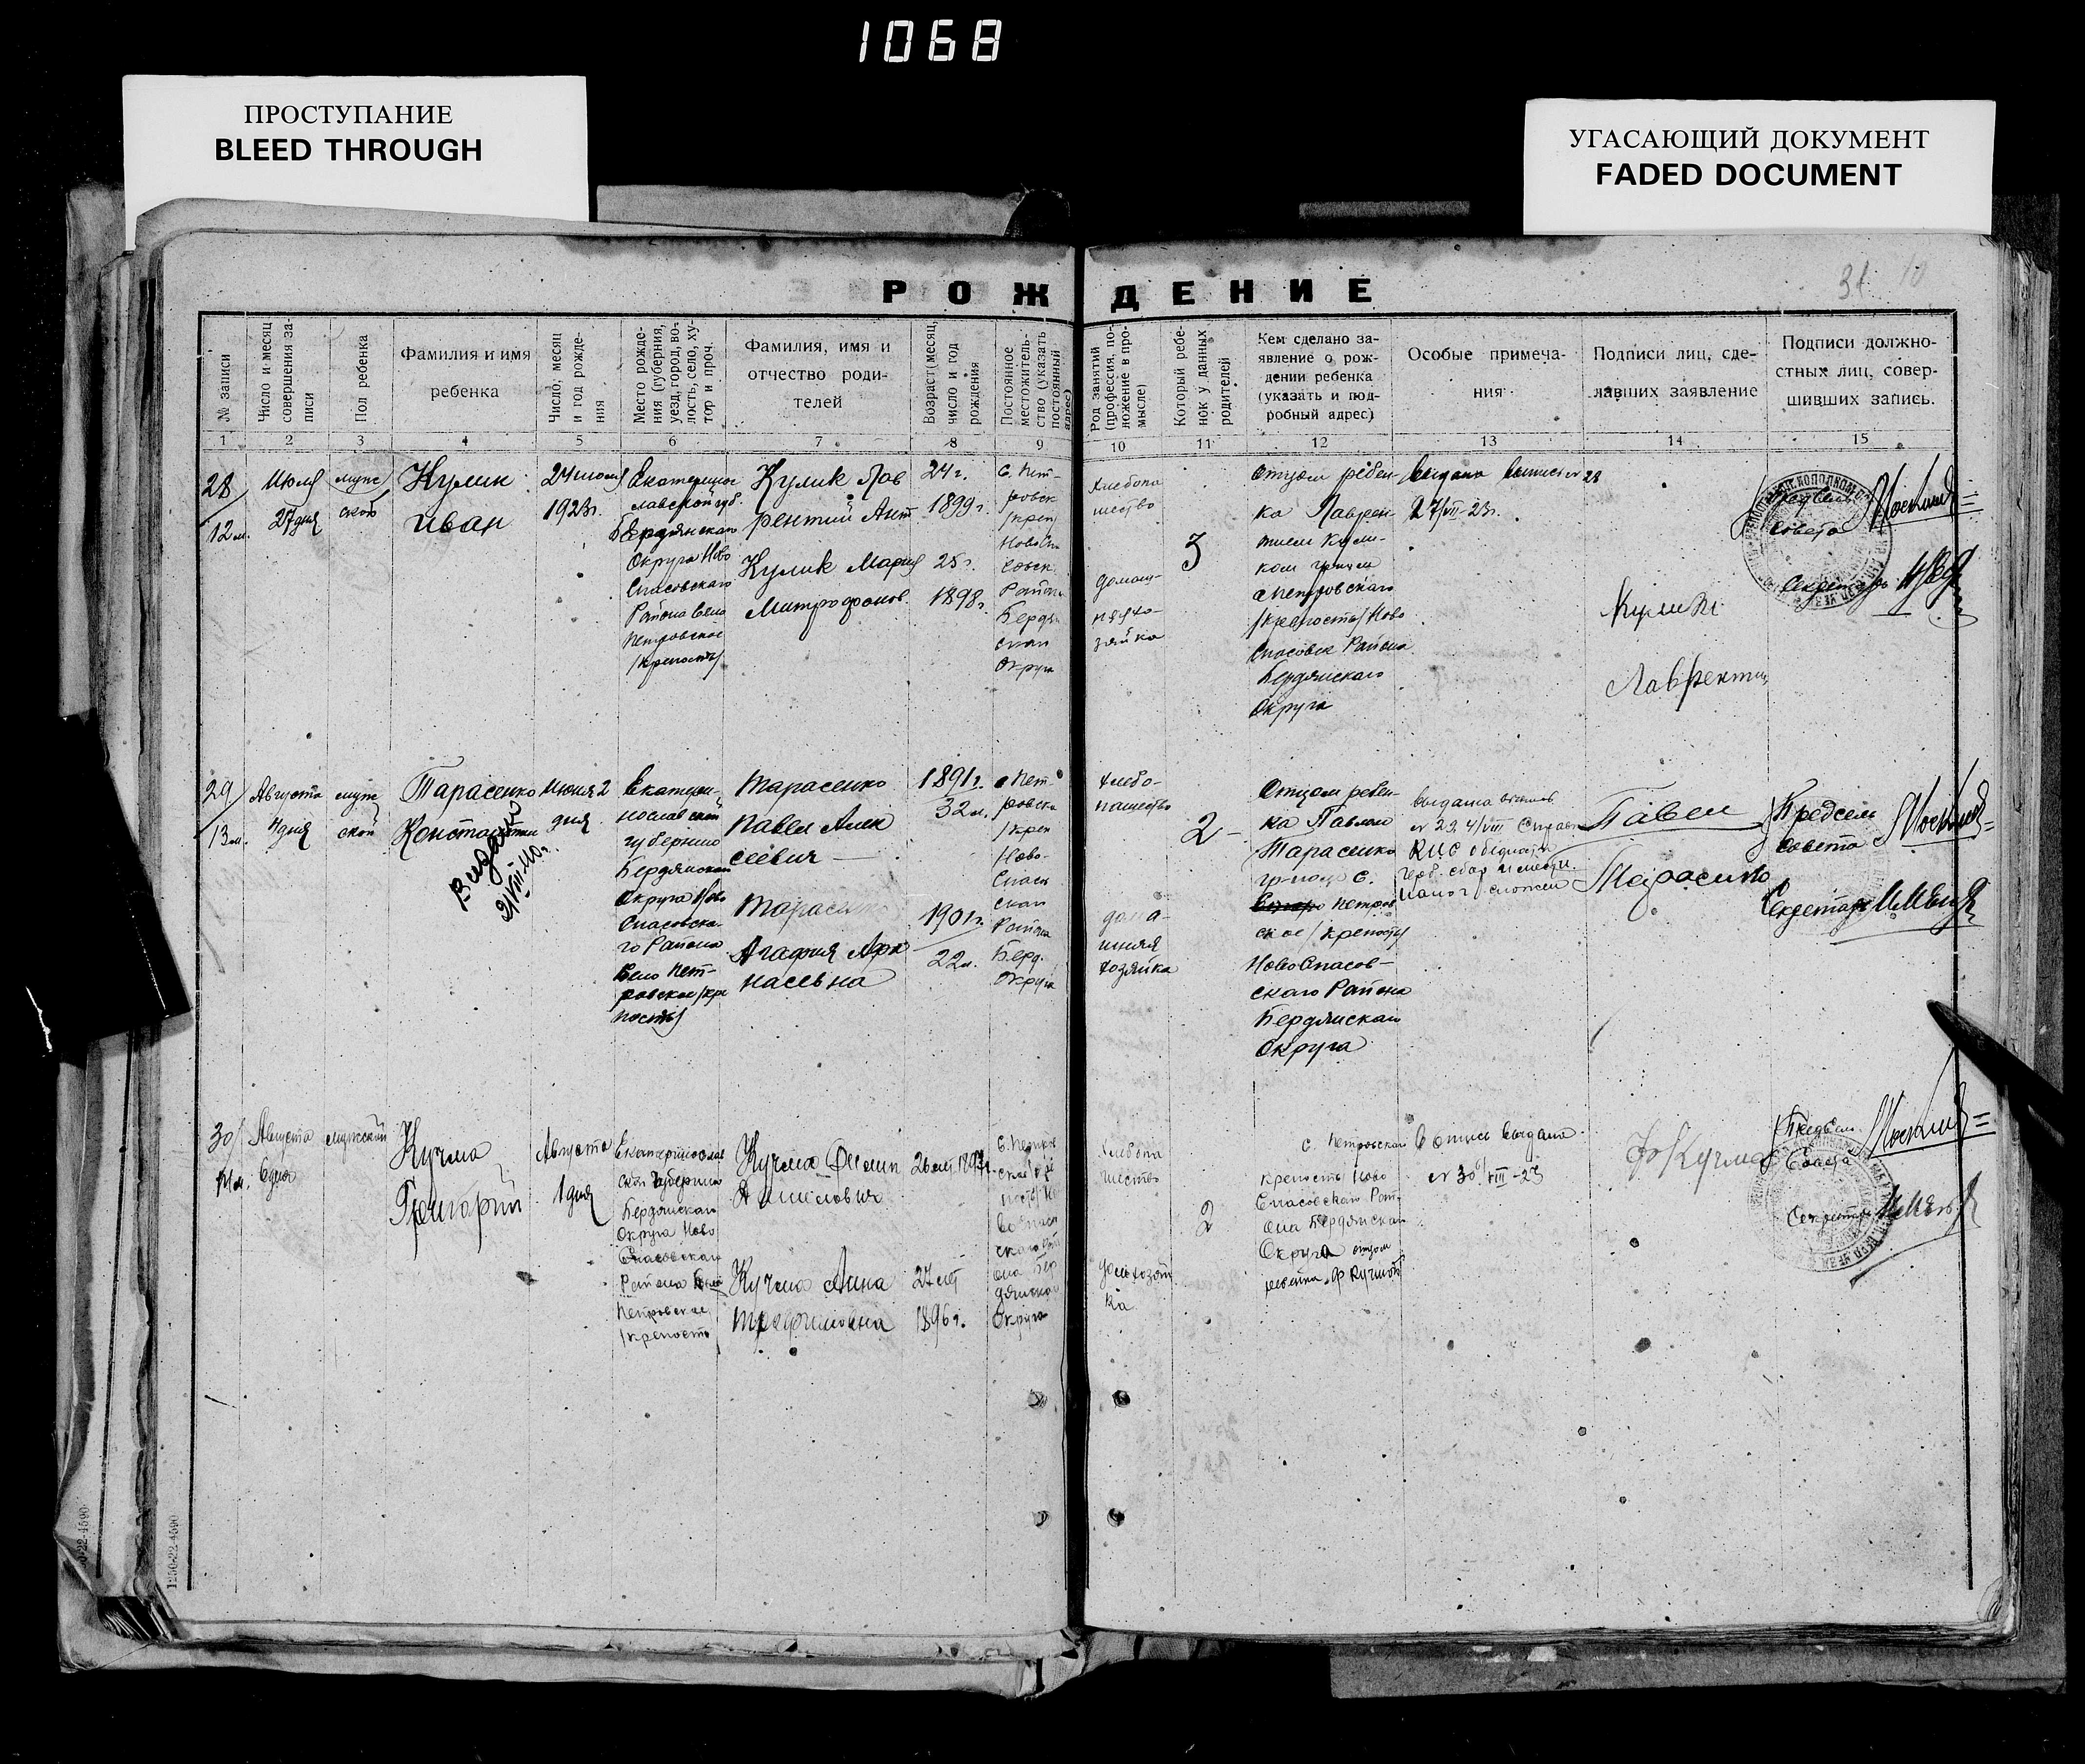 1068
ПРОСТУПАНИЕ
BLEED THROUGH
УГАСАЮЩИЙ ДОКУМЕНТ
FADED DOCUMENT
31 10
РОЖДЕНИЕ
№ записи
Число и месяц совершения за-
писи
Пол ребенка
Фамилия и имя
ребенка
Число, месяц
и год рожде-
ния
Место рожде-
ния (губерния,
уезд, город, во-
лость, село, ху-
тор и проч.
Фамилия, имя и
отчество роди-
телей
Возраст (месяц,
число и год
рождения
Постоянное
местожитель-
ство (указать
постоянный
адрес)
Род занятий
(профессия, по-
ложение в про-
мысле)
Который ребе-
нок у данных
родителей
Кем сделано за-
явление о рож-
дении ребенка
(указать и под-
робный адрес)
Особые примеча-
ния
Подписи лиц, сде-
лавших заявление
Подписи должно-
стных лиц, совер-
шивших запись.
1 2 3 4 5 6 7 8 9 10 11 12 13 14 15
28
12 м.
Июля
27 дня
мужс
ской
Кулик
Иван
24 июля
1923 г.
Екатерино
славской губ.
Бердянскаго
Округа Ново
Спасовскаго
Района Село
Петровское
/крепость/
Кулик Лав
рентий Ант
Кулик Мария
Митрофанов.
24 г.
1899 г.
25 г.
1898 г.
с. Пет-
ровск
/креп
Ново Сп
совск.
Района
Бердян
скаго
Округа
Хлебопа
шество
домаш-
няя хо-
зяйка
3
Отцом ребен
ка Лаврен-
тием Кули-
ком гр-ном
с Петровскаго
/крепость/ Ново
Спасовск Района
Бердянскаго
Округа
Выдана выпись № 28
27/VII-23 г.
Кулик
Лаврентий
Предсель
Совета
Секретарь
29
13 м.
Августа
4 дня
мужс
ской
Тарасенко
Константин
Видано
21/VIII-40 г.
Июля 2
дня
Екатери-
нославской
губернии
Бердянскаго
Округа Ново
Спасовска-
го Района
Село Пет-
ровское /кре
пость/
Тарасенко
Павел Алек
сеевич
Тарасенко
Агафия Афа
насьевна
1891 г.
32 л.
1901 г.
22 л.
с Пет-
ровска
/креп
Ново-
Спасо
скаго
Района
Берд.
Округа
Хлебо-
пашество
дома-
шняя
хозяйка
2-
Отцом ребен-
ка Павлом
Тарасенко
гр-ном с.
Петров
ское /крепость/
НовоСпасов-
скаго Района
Бердянскаго
Округа
выдана выпись
№ 29 4/VIII
Павел
Тарасенко
Предсель
Совета
Секретарь
30
14 м.
Августа
6 дня
мужской
Кучма
Григорий
Августа
1 дня
Екатеринослав
ской Губернии
Бердянскаго
Округа Ново
Спасовскаго
Района Село
Петровское
/крепость
Кучма Филип
Кучма Анна
Трофимовна
26 лет 1897 г.
27 лет
1896 г.
С. Петров
Округа
Хлебопа
шество
дом хозяй
ка
2
с. Петровская
крепость Ново
Спасовскаго Рай-
она Бердянскаго
Округа отцом
ребенка Ф Кучмой
Выпись выдана
№ 30 VIII-23
Ф Кучма
Предсель
Совета
Секретарь
1250-22-4590